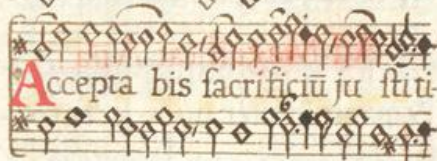 Accepta bis sacrificiũ ju stiti-